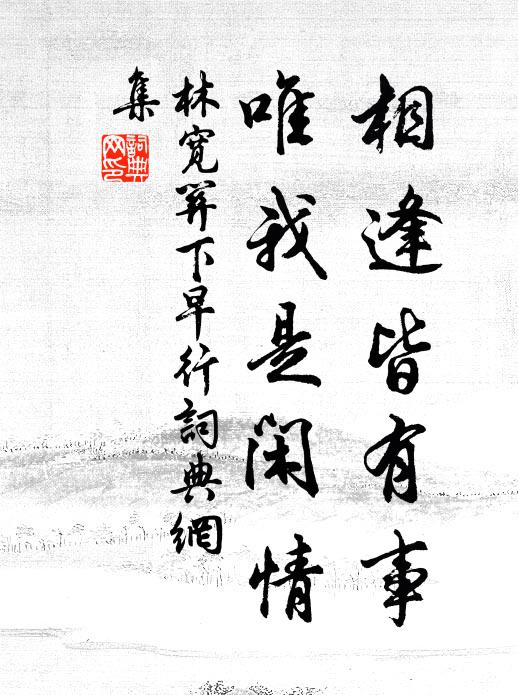 相逢皆有事
唯我是閑情
林寬關下早行詞典網
集
詞典
网印